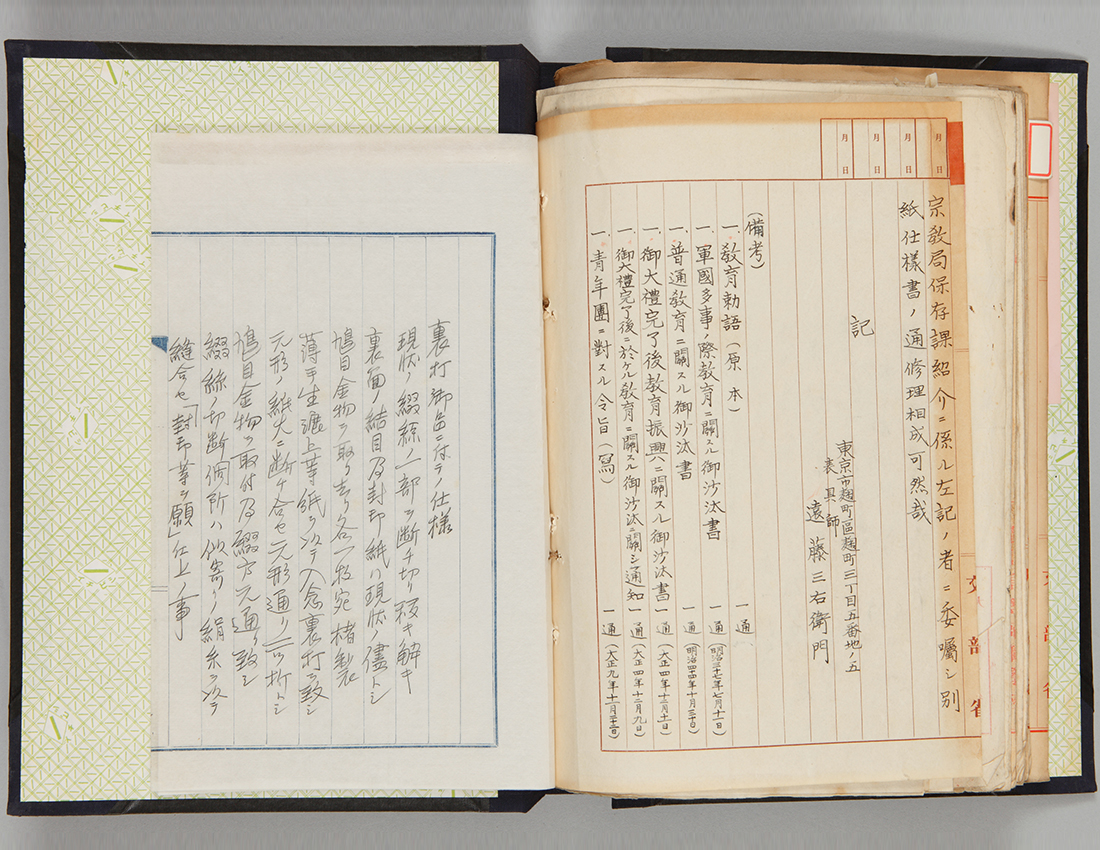 月 日
月 日
月 日
月 日
宗教局保存課紹介ニ係ル左記ノ者ニ委囑シ別
紙仕様書ノ通修理相成可然哉
記
東京市麹町區麹町三丁目五番地ノ五
表具師
遠藤三右衛門
(備考)
一、教育勅語(原本) 一通
一、軍國多事ノ際教育ニ關スル御沙汰書 一通(明治三十七年七月十一日)
一、普通教育ニ關スル御沙汰書 一通(明治四十四年十月三十日)
一、御大禮完了後教育振興ニ關スル御沙汰書 一通(大正四年十二月十日)
一、御大禮完了後ニ於ケル教育ニ關スル御沙汰ニ關シ通知 一通(大正四年十二月九日)
一、青年團ニ對スル令旨(寫) 一通(大正九年十一月二十二日)
文部省
裏打御色ニ付テノ仕様
現状ノ綴絲ノ一部ヲ断チ切リ移キ解キ
裏面ノ結目及封印紙ハ現状ノ儘トシ
鳩目金物ヲ取り去り各一枚宛楮製
薄手生漉上等紙ヲ以テ入念裏打ヲ致シ
元形ノ紙大ニ断チ合セ元形通リ二ツ折トシ
鳩目金物ヲ取付及綴方元通リ致シ
綴絲ノ切断個所ハ似寄リノ絹糸ヲ以テ
縫合セ「封印等ヲ願」仕上ノ事